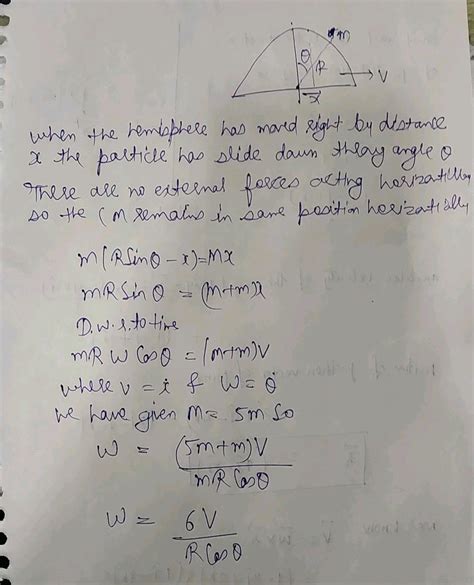 m
θ
R
→ V
x
when the hemisphere has moved right by distance
x the particle has slide down thray angle θ
There are no external forces acting horizatilly
so the CM remains in same position horizatially
m(RSinθ - x) = Mx
mRSin θ = (M+m)x
D.w.r.to time
mR W Cosθ = (m+m)V
where v = ẋ & W = θ̇
we have given M = 5m So
W = (5m+m)V / mR Cosθ
W = 6V / R Cosθ